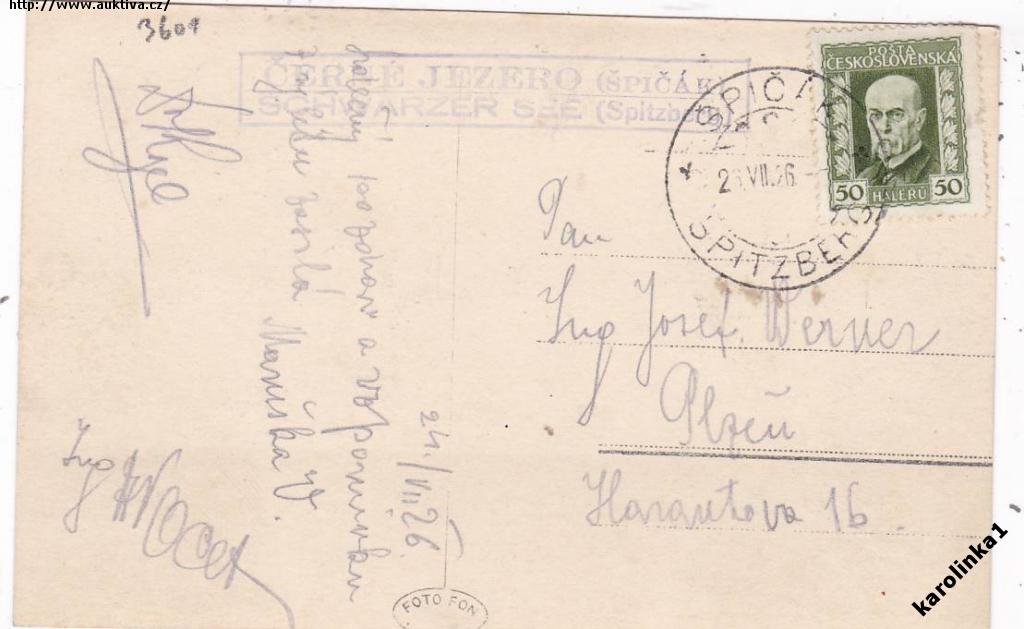 http://www.auktiva.cz/
3601
ČERNÉ JEZERO (ŠPIČÁK)
SCHWARZER SEE (Spitzberg)
POŠTA
ČESKOSLOVENSKÁ
50 HALÉŘŮ 50
ŠPIČÁK
25.VII.26
SPITZBERG
pozdrav a vzpomínku
zasílá Maruška
24./VII 26.
Ing
Pan
Ing Josef Werner
Plzeň
Harantova 16.
FOTO FON
karolinka1